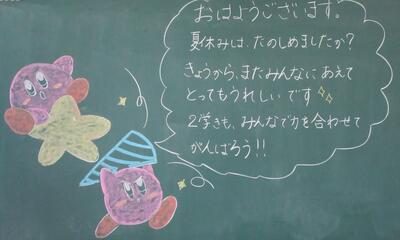 おはようございます。
夏休みは、たのしめましたか?
きょうから、またみんなにあえて
とってもうれしいです
2学きも、みんなで力を合わせて
がんばろう!!